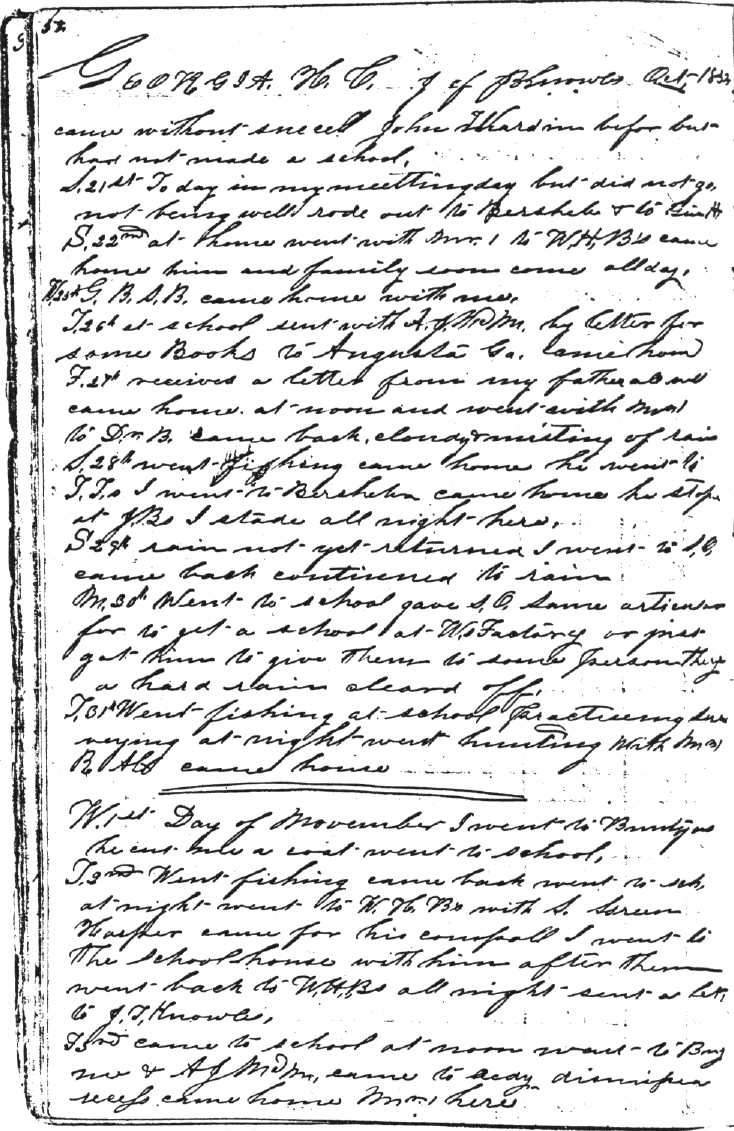 52
GEORGIA. H. C. J of B Knowls Oct, 1832
came without snecell John Thardin befor but
had not made a school,
S. 21st To day in my meettingday but did not go,
not being well rode out to Bersheba & to
S, 22nd at home went with Mr. 1 to W,H,B's came
home him and family soon come all day,
W,25th G. B. S. B. came home with me,
T. 26th at school sent with A. J. McDM. by letter for
some Books to Augusta Ga. came hom
F. 27th received a letter from my father all well
came home. at noon and went with Mr 1
to Dr. B. came back, cloudy & misting of rain
S. 28th went fishing came home he went to
T. T,s I went to Bersheba came home he stop
at J Bs I stade all night here,
S 29th rain not yet returned I went to S, O,
came back continued to rain
M, 30th Went to school gave S. O. Same articles
for to get a school at W,s Factory or just
get him to give them to some person they
a hard rain cleard off,
T, 31st Went fishing at school practiceing Sur
veying at night went hunting With Mr 1
R came home
W. 1st Day of November I went to
he cut me a coat went to school,
T. 2nd Went fishing came back went to sch,
at night went to W. H. Bs with S. Green
Harper came for his compass I went to
the school house with him after them
went back to W,H,Bs all night sent a let,
to J, T, Knowls,
F 3rd came to school at noon went to
me & A J McDM, came to acdy dismissed
recess came home Mr. 1 here